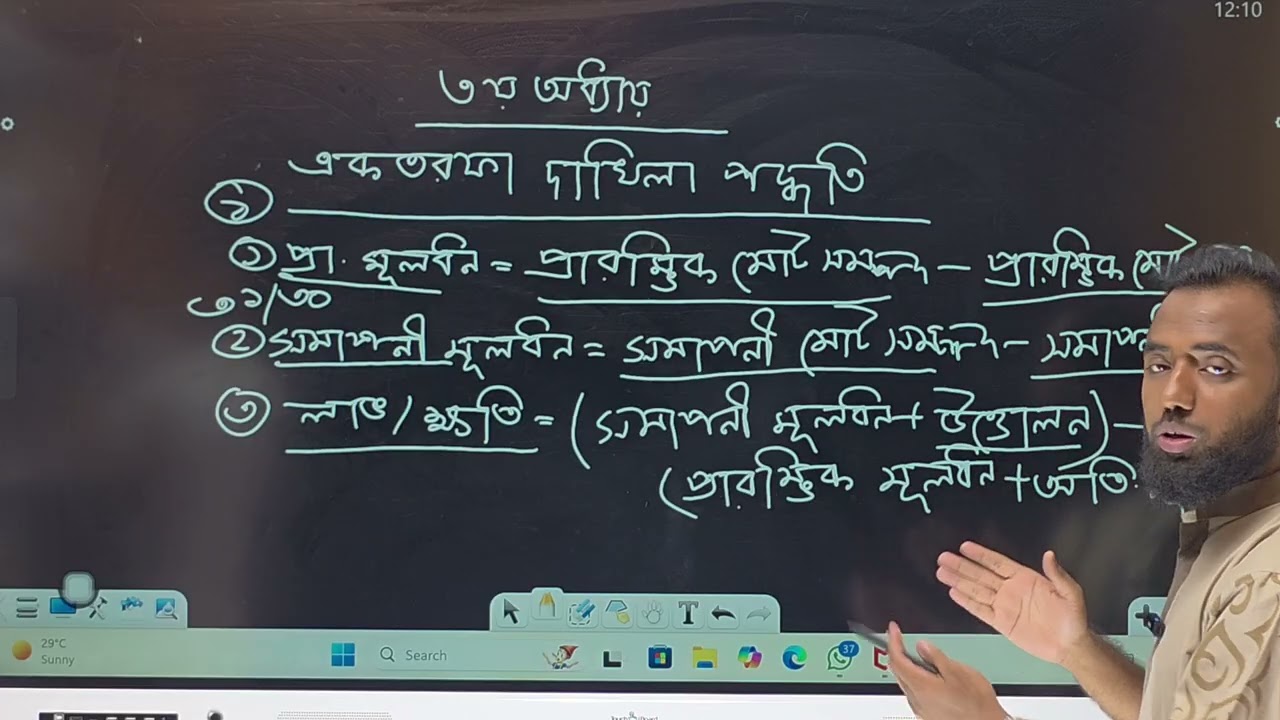 12:10
৩য় অধ্যায়
একতরফা দাখিলা পদ্ধতি
১
① প্রা. মূলধন = প্রারম্ভিক মোট সম্পদ – প্রারম্ভিক মোট
৩১/৩০
② সমাপনী মূলধন = সমাপনী মোট সম্পদ –
③ লাভ / ক্ষতি = (সমাপনী মূলধন + উত্তোলন) –
(প্রারম্ভিক মূলধন + অতি
T
29°C
Sunny
Search
37